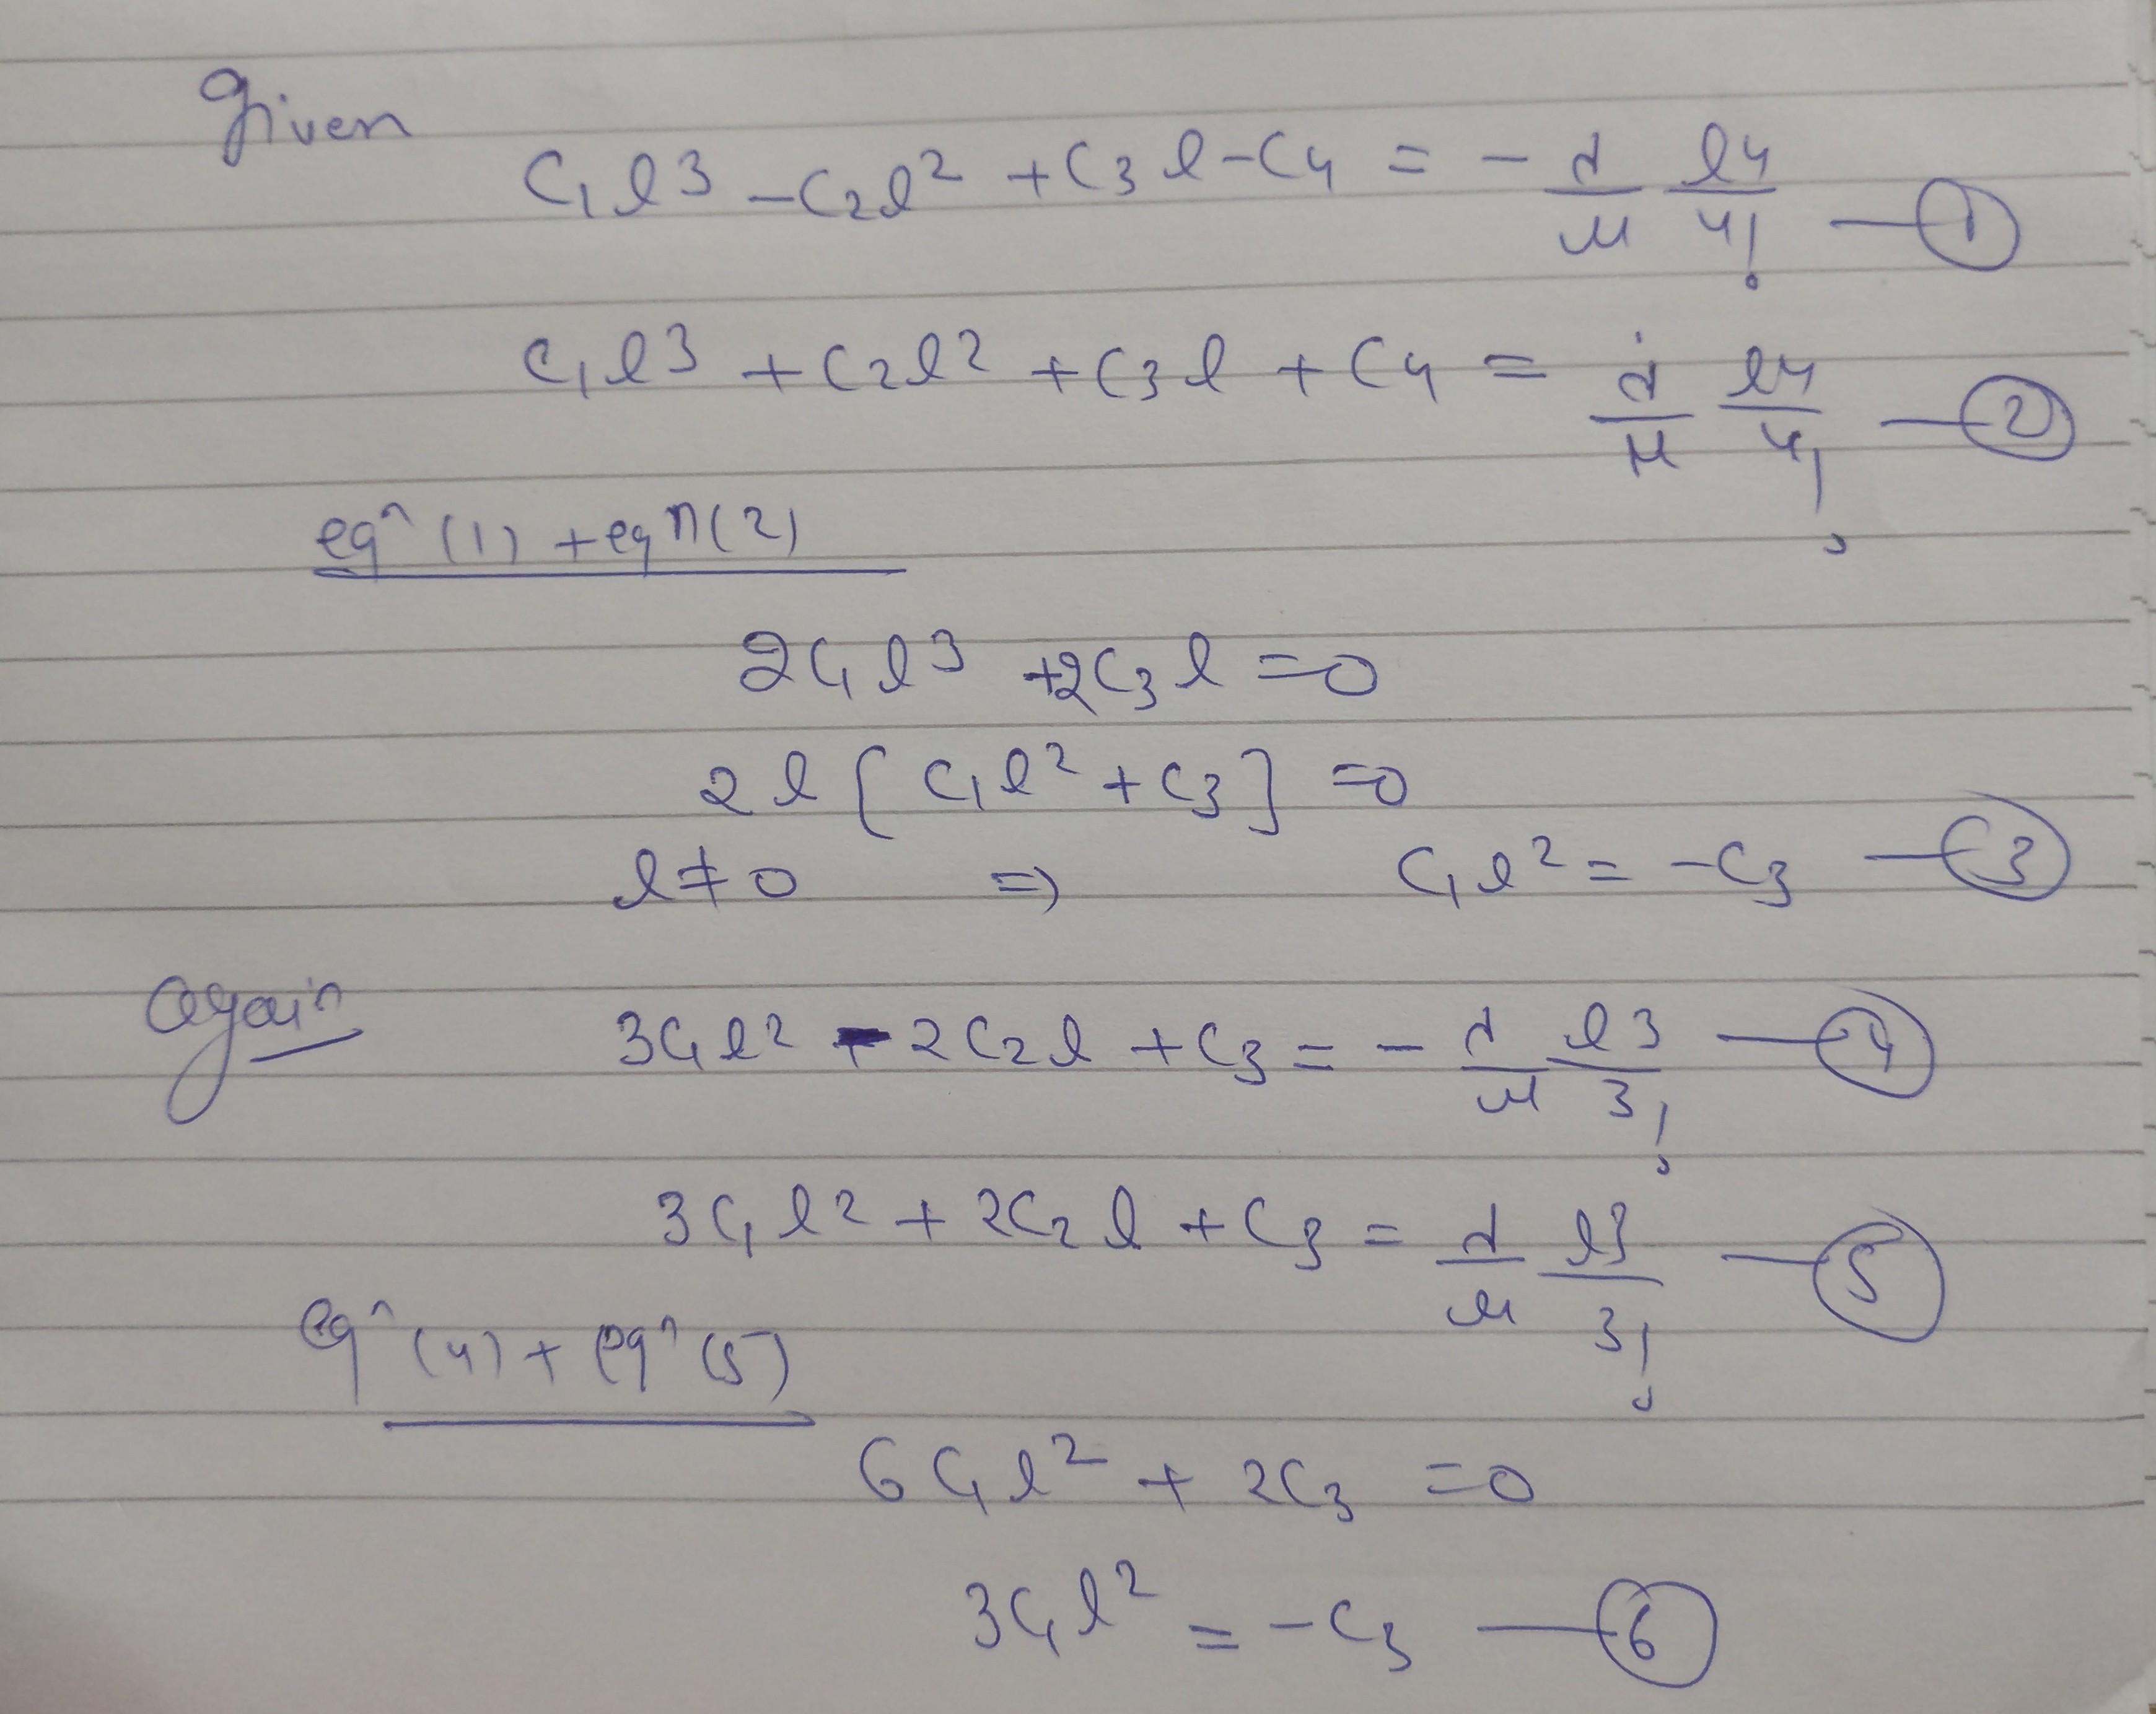 Given
C₁l³ - C₂l² + C₃l - C₄ = - d/μ l⁴/4! — (1)
C₁l³ + C₂l² + C₃l + C₄ = d/μ l⁴/4! — (2)
eqⁿ (1) + eqn(2)
2C₁l³ + 2C₃l = 0
2l [C₁l² + C₃] = 0
l ≠ 0 ⇒ C₁l² = -C₃ — (3)
Again 3C₁l² - 2C₂l + C₃ = - d/μ l³/3! — (4)
3C₁l² + 2C₂l + C₃ = d/μ l³/3! — (5)
eqⁿ (4) + eqⁿ (5)
6C₁l² + 2C₃ = 0
3C₁l² = -C₃ — (6)